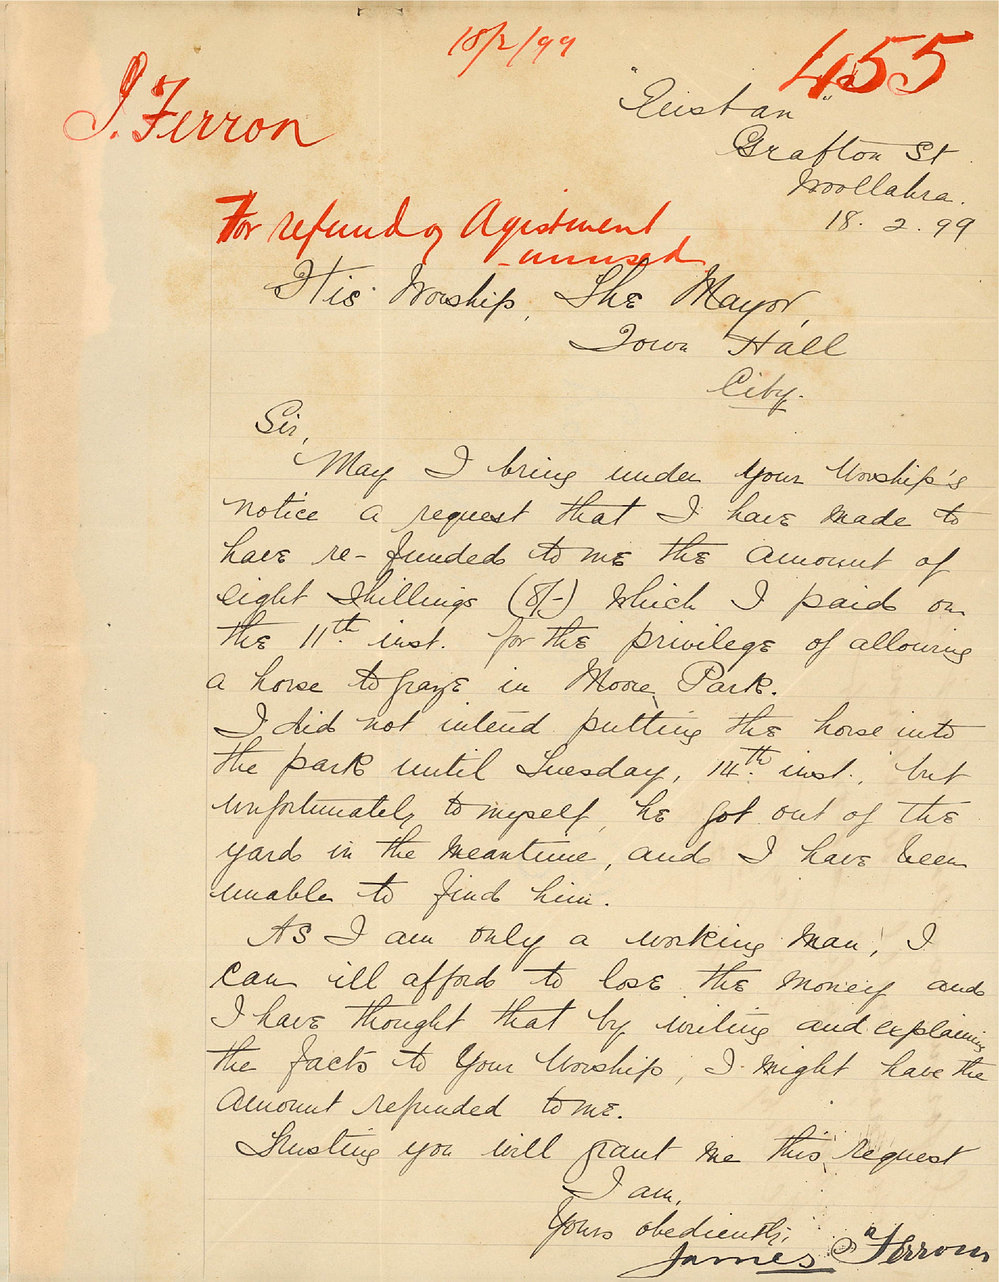 18/2/99
455
J. Ferron
"Euistan"
Grafton St
Woollahra.
18. 2. 99
For refund of Agistment
unused
His Worship, The Mayor,
Town Hall
City.
Sir,
May I bring under Your Worship's
notice a request that I have made to
have re-funded to me the amount of
eight Shillings (8/-) which I paid on
the 11th. inst. for the privilege of allowing
a horse to graze in Moore Park.
I did not intend putting the horse into
the park until Tuesday, 14th. inst., but
unfortunately to myself, he got out of the
yard in the meantime, and I have been
unable to find him.
As I am only a working man, I
can ill afford to lose the money and
I have thought that by writing and explaining
the facts to Your Worship, I might have the
amount refunded to me.
Trusting you will grant me this request
I am,
Yours obediently,
James Ferron